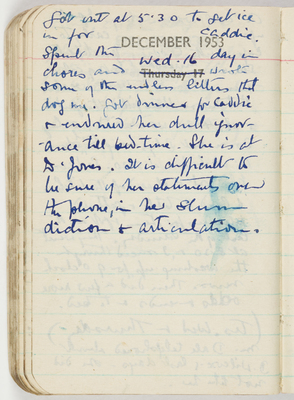 Got out at 5.30 to get ice
in for Caddie.
DECEMBER 1953
Spent the Wed. 16 day in
chores and Thursday 17 wrote
some of the endless letters that
dog me. Got dinner for Caddie
& endured her dull ignor-
ance till bed-time. She is at
D. Jones. It is difficult to
be sure of her statements over
the phone, in her slum
diction & articulation.